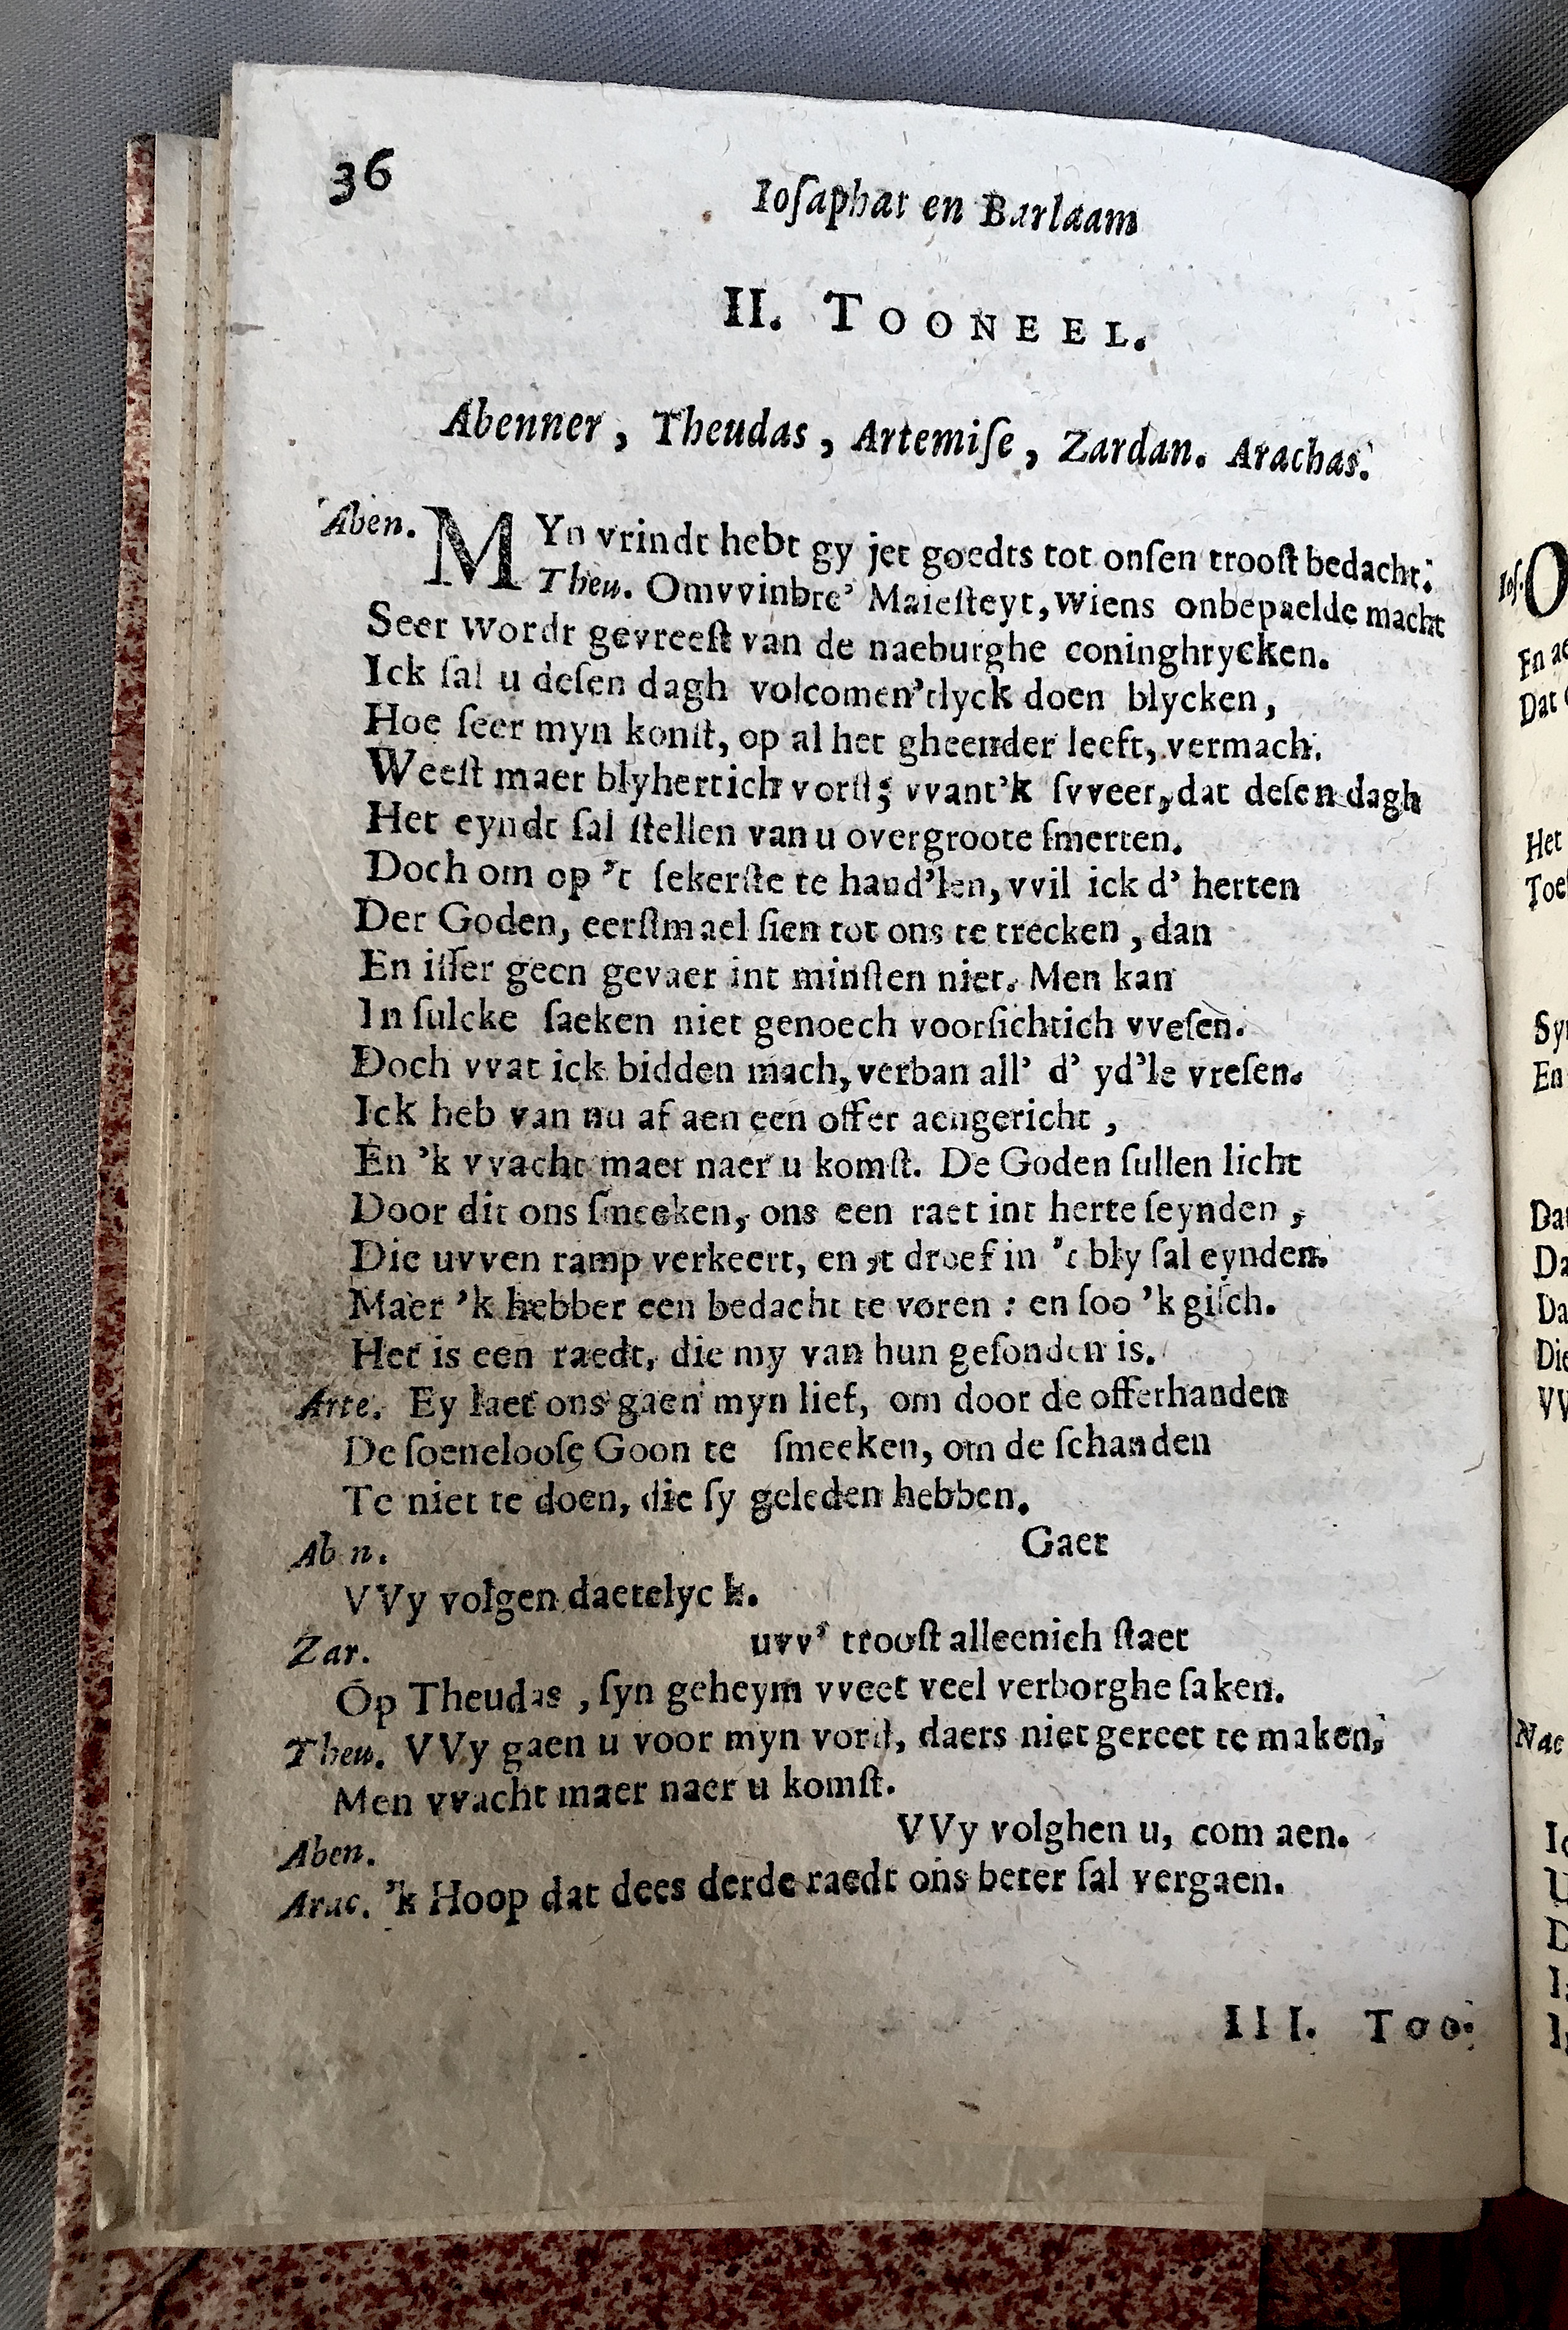 36
Ioſaphat en Barlaam
II. TOONEEL.
Abenner, Theudas, Artemiſe, Zardan. Arachas.
Aben. MYn vrindt hebt gy jet goedts tot onſen trooſt bedacht.
Theu. Omvvinbre' Maieſteyt, wiens onbepaelde macht
Seer wordt gevreeſt van de naeburghe coninghrycken.
Ick ſal u deſen dagh volcomen'tlyck doen blycken,
Hoe ſeer myn konſt, op al het gheender leeft, vermach.
Weeſt maer blyhertich vorſt; vvant'k ſvveer, dat deſen dagh
Het eyndt ſal ſtellen van u overgroote ſmerten.
Doch om op 't ſekerſte te hand'len, vvil ick d' herten
Der Goden, eerſtmael ſien tot ons te trecken, dan
En iſſer geen gevaer int minſten niet. Men kan
In ſulcke ſaeken niet genoech voorſichtich vveſen.
Doch vvat ick bidden mach, verban all' d' yd'le vreſen.
Ick heb van nu af aen een offer aengericht,
En 'k vvacht maer naer u komſt. De Goden ſullen licht
Door dit ons ſmeeken, ons een raet int herte ſeynden,
Die uvven ramp verkeert, en 't droef in 't bly ſal eynden.
Maer 'k hebber een bedacht te voren: en ſoo 'k giſch.
Het is een raedt, die my van hun geſonden is.
Arte. Ey laet ons gaen myn lief, om door de offerhanden
De ſoenelooſe Goon te ſmeeken, om de ſchanden
Te niet te doen, die ſy geleden hebben.
Ab n. Gaet
VVy volgen daetelyck.
Zar. uvv' trooſt alleenich ſtaet
Op Theudas, ſyn geheym vveet veel verborghe ſaken.
Theu. VVy gaen u voor myn vorſt, daers niet gereet te maken,
Men vvacht maer naer u komſt.
Aben. VVy volghen u, com aen.
Arac. 'k Hoop dat dees derde raedt ons beter ſal vergaen.
III. Too-
Ioſ. O
En ae
Dat
Het
Toe
Sy
En
Da
Da
Da
Die
VV
Nae